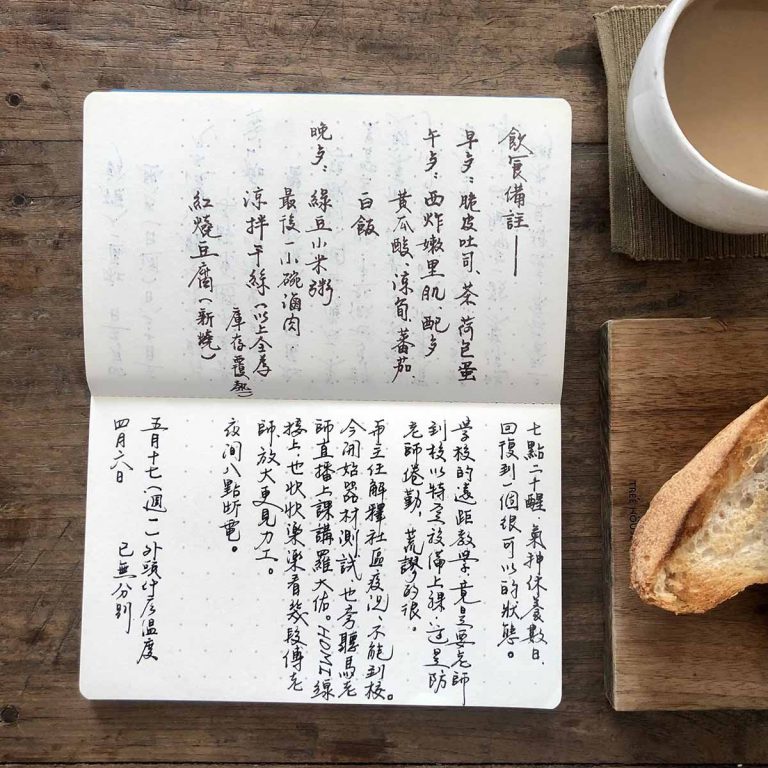 飲食備註——
早歺:脆皮吐司、茶、荷包蛋
午歺:酉炸嫩里肌,配歺
黃瓜酸、涼筍、蕃茄、
白飯
晚歺:綠豆小米粥
最後一小碗滷肉
涼拌干絲(以上全為
庫存覆熱)
紅燒豆腐(新燒)
七點二十醒 氣神休養數日、
回復到一個很可以的狀態。
學校的遠距教學,竟是要老師
到校以特定設備上課,這是防
老師倦勤,荒謬的很。
主任解釋社區疫況、不能到校。
今開始器材測試,也旁聽馬老
師直播上課講羅大佑。HOMI線
接上,也快快樂樂看幾段傅老
師放大更見力工。
夜間八點斷電。
五月十七(週一)外頭什么溫度
四月六日 已無分別
TREE HOU